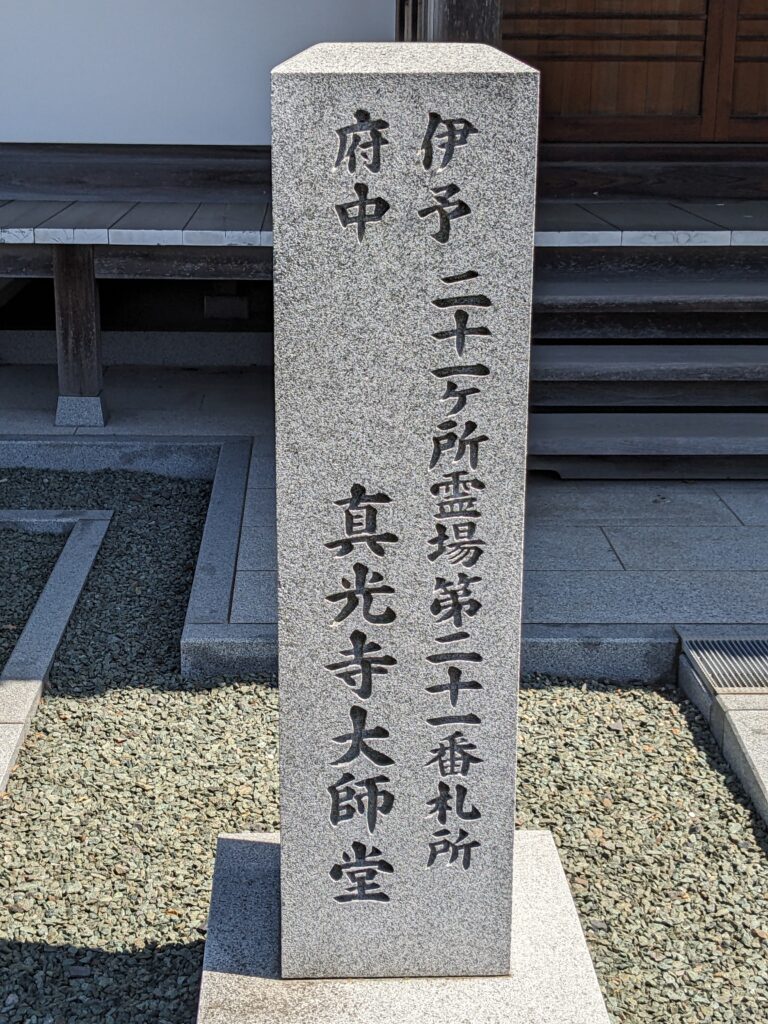 伊予
府中
二十一ヶ所霊場第二十一番札所
真光寺大師堂